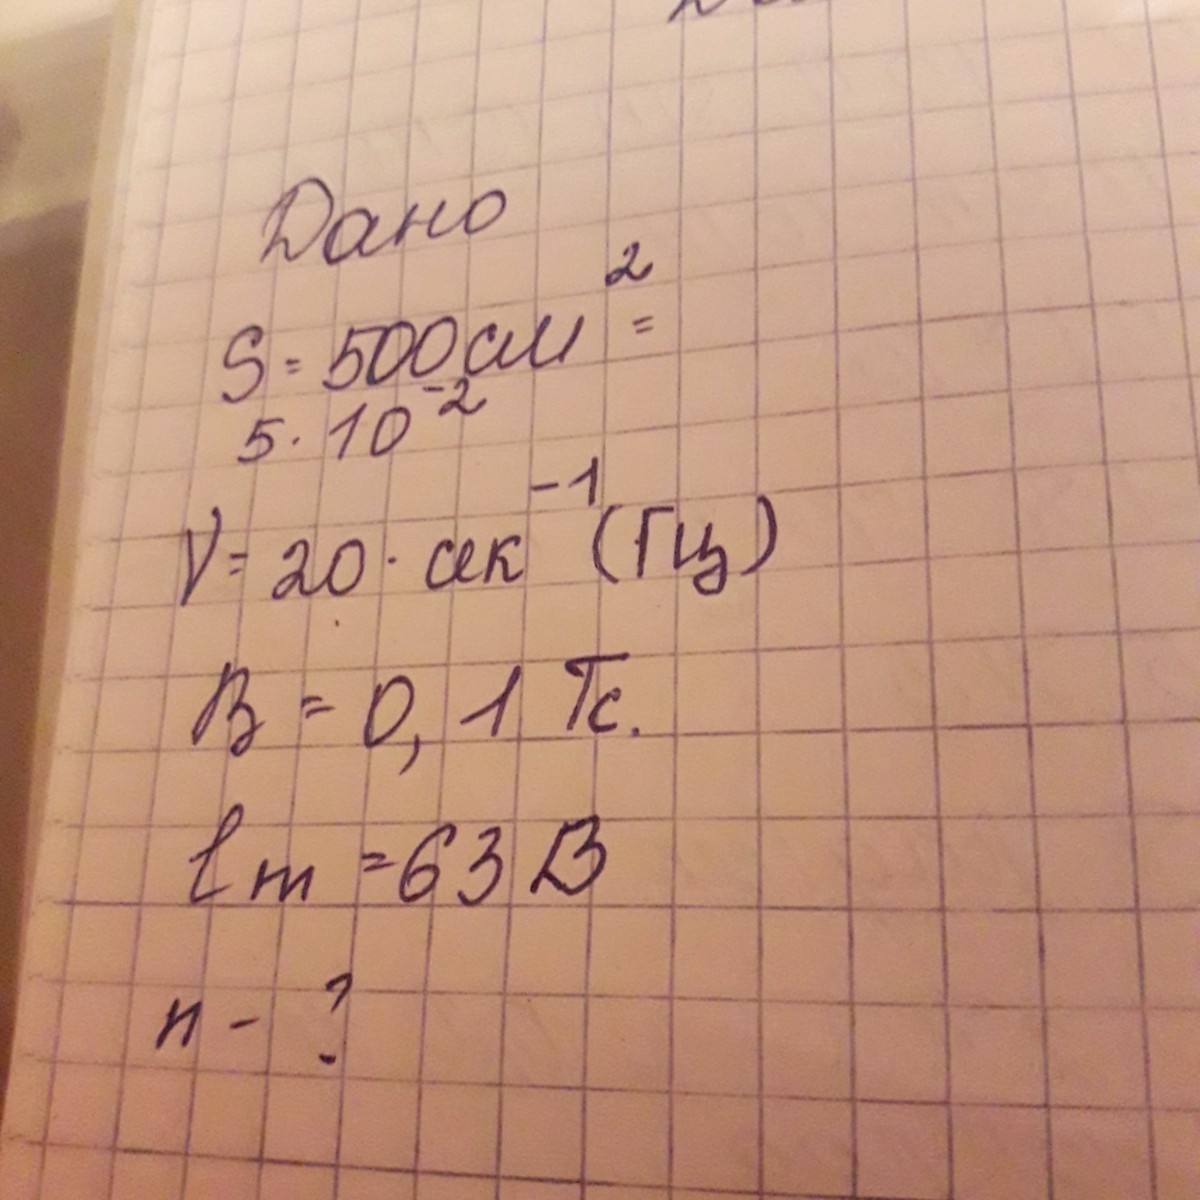 Дано
S = 500 см² =
5 · 10⁻²
V = 20 · сек⁻¹ (Гц)
B = 0,1 Тс.
lm = 63 В
n - ?